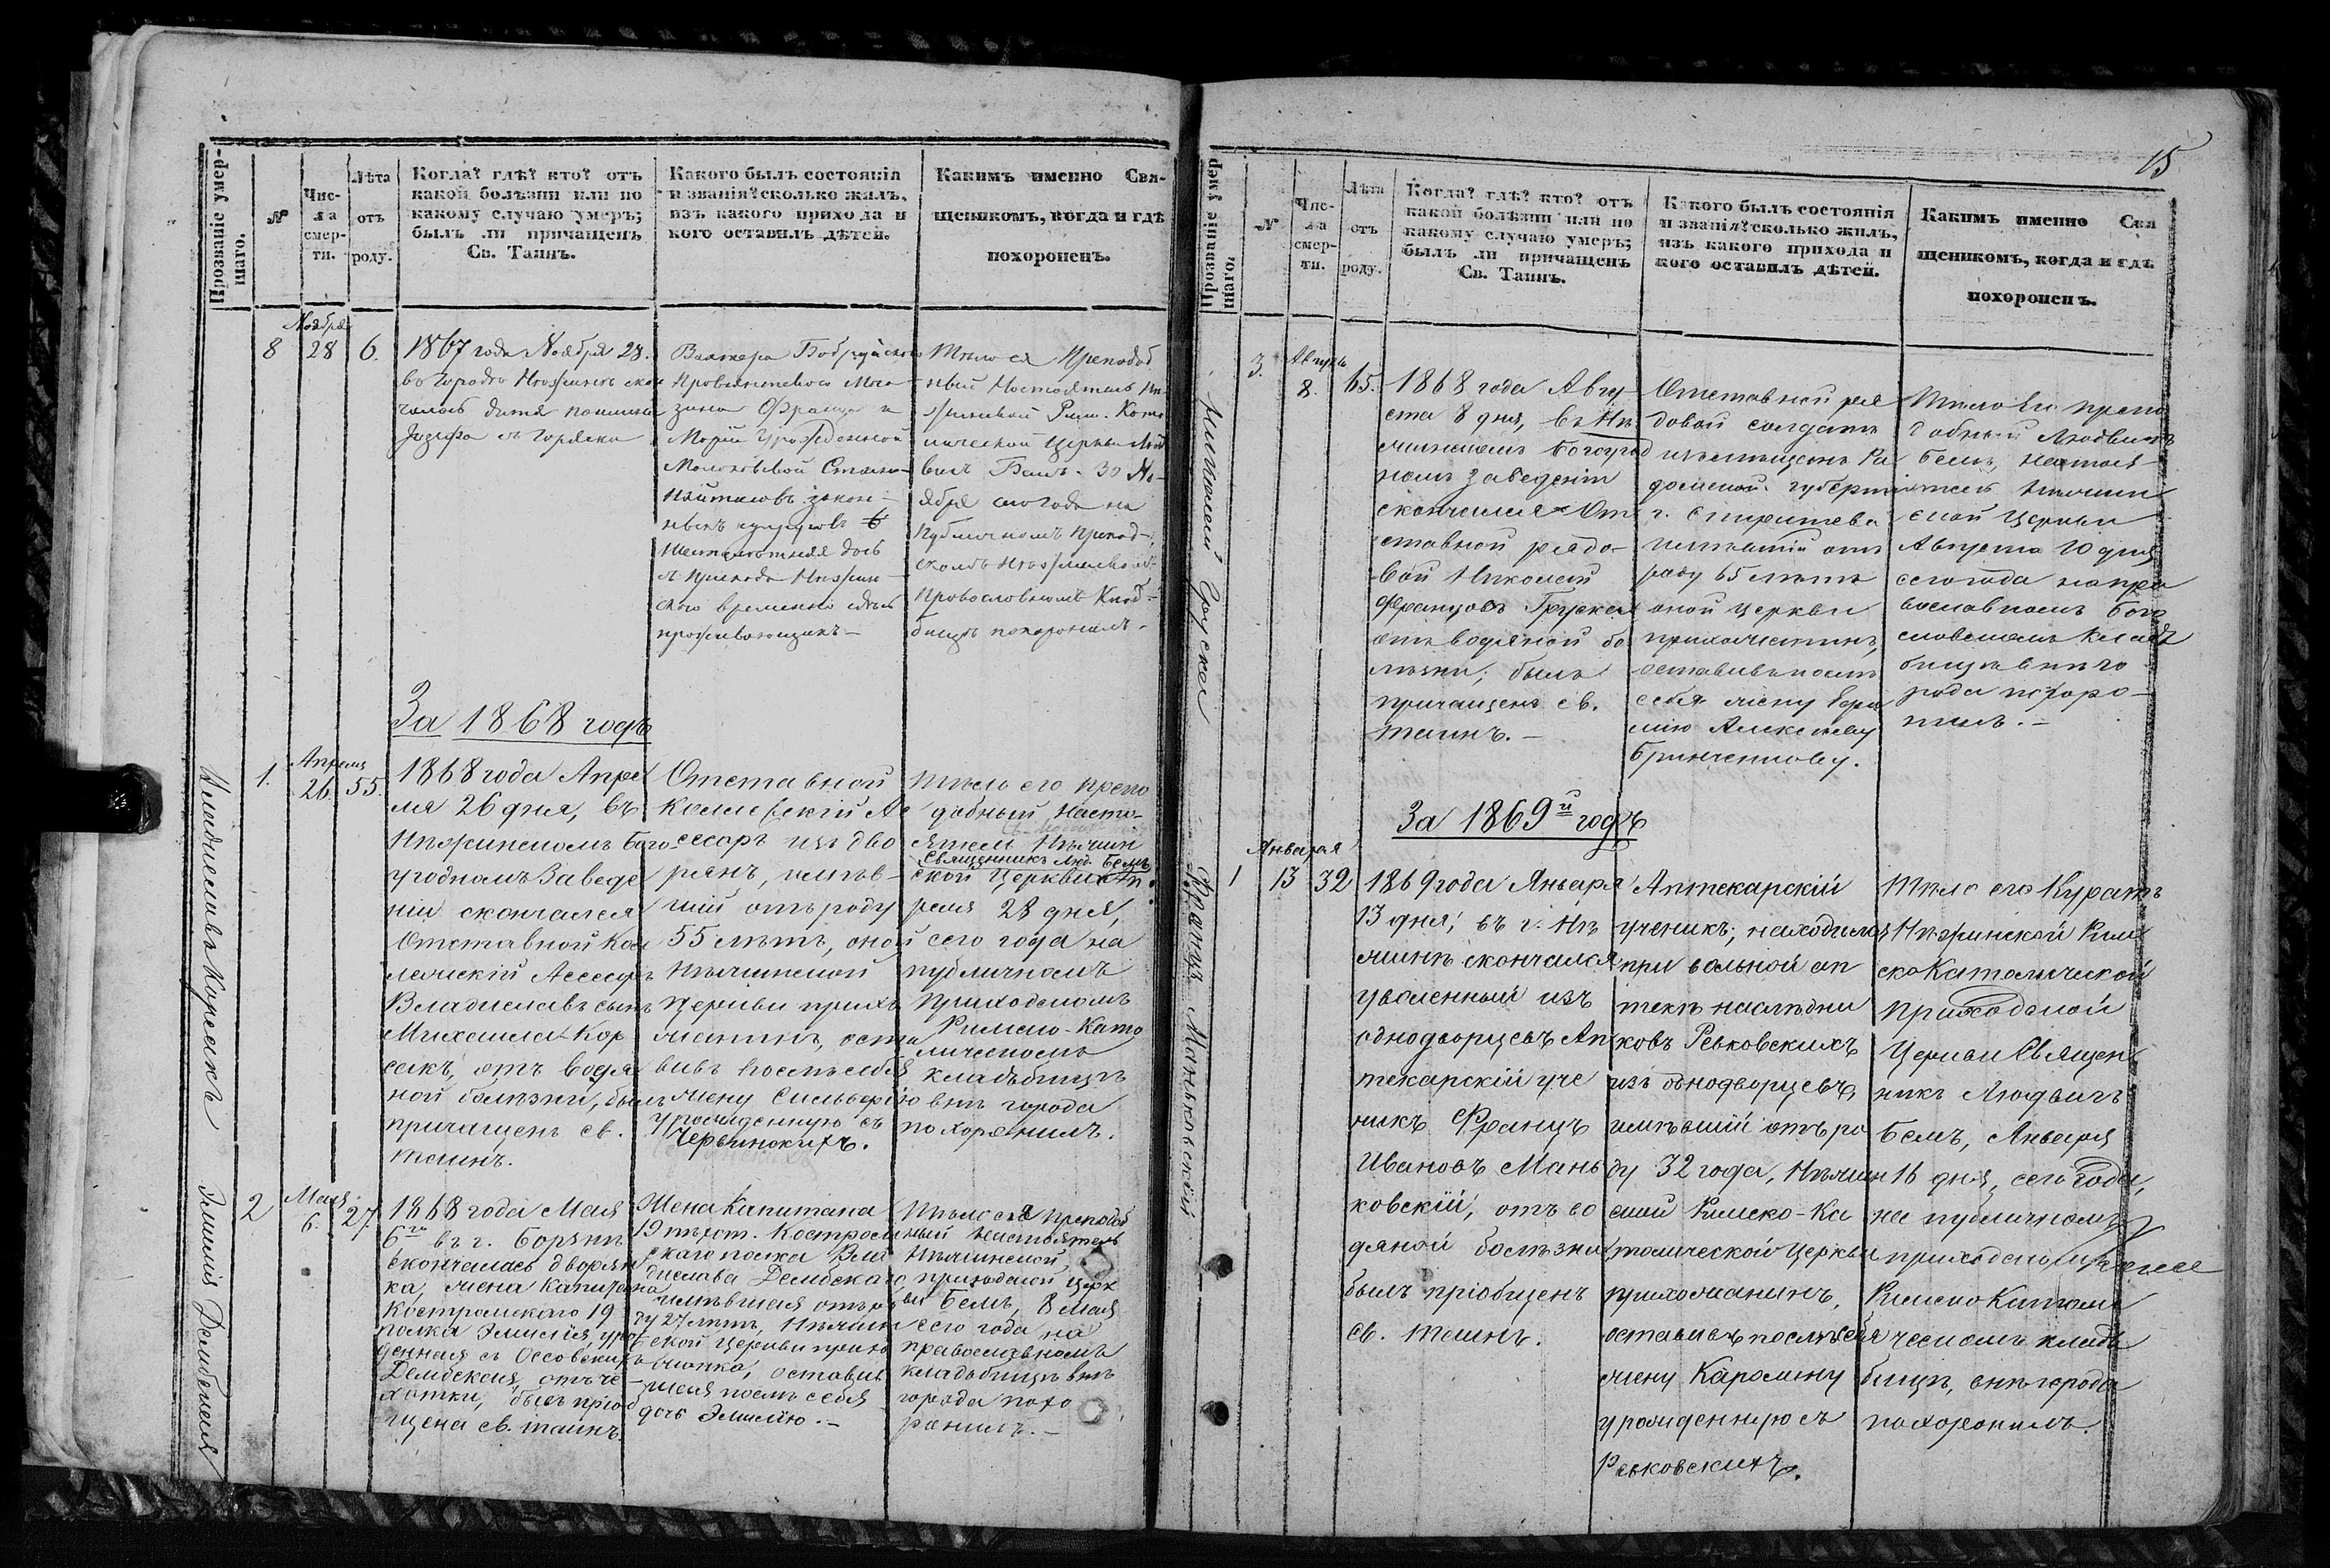 Прозваніе умер-
шаго.
№
Чис-
ла
смер-
ти.
Лѣта
отъ
роду.
Когда? гдѣ? кто? отъ
какой болѣзни или по
какому случаю умеръ;
былъ ли причащенъ
Св. Таинъ.
Какого былъ состоянія
и званія? сколько жилъ,
изъ какого прихода и
кого оставилъ дѣтей.
Какимъ именно Свя-
щенникомъ, когда и гдѣ
похороненъ.
Ноября
8 28 6.
1867 года Ноября 28.
въ городѣ
Бобруйскаго
Магазина Франца и
Маріи Урожденной
законныхъ супруговъ
дочь
временно здѣсь
проживающихъ
Тѣло ея Преподоб
ный Настоятель Нѣ
жинской Рим. Като
лической Церкви Люд
викъ Бемъ 30 Но-
ября сего года на
Публичномъ Приход-
скомъ Нѣжинскомъ
Православномъ Клад-
бищѣ похоронилъ.
За 1868 годъ
Владиславъ Корсакъ
1.
Апреля
26. 55.
1868 года Апре
ля 26 дня, въ
Нѣжинскомъ Бого
угодномъ Заведе
ніи скончался
Отставной Кол
лежскій Асессоръ
Владиславъ сынъ
Михаила Кор
сакъ, отъ водя
ной болѣзни, былъ
причащенъ св.
таинъ.
Отставной
Коллежскій Ас
сесоръ изъ дво
рянъ, имѣв-
шій отъ роду
55 лѣтъ, оной
Нѣжинской
Церкви прихо
жанинъ, оста
вивъ послѣ себя
жену Сильверію
урожденную съ
Червинскихъ.
Тѣло его препо
добный Насто-
ятель Нѣжин
Священникъ Люд. Бемъ
ской Церкви Ап-
реля 28 дня,
сего года на
публичномъ
Приходскомъ
Римско-Като
лическомъ
кладбищѣ
внѣ города
похоронилъ.
Эмилія Дембская
2
Мая
6. 27.
1868 года Мая
6го въ г. Борзнѣ
скончалась дворян
ка, жена Капитана
Костромскаго 19
полка Эмилія урож
денная съ Оссовскихъ
Дембская, отъ че
хотки, была пріоб
щена св. таинъ.
Жена Капитана
19 пѣхот. Костром
скаго полка Вла
дислава Дембскаго
имѣвшая отъ ро
ду 27 лѣтъ, Нѣжин
ской Церкви прихо
жанка, оставив
шая послѣ себя
дочь Эмилію.-
Тѣло ея преподоб
ный Настоятель
Нѣжинской
приходской Церк
ви Бемъ, 8 мая
сего года на
православномъ
кладбищѣ внѣ
города похо
ронилъ.-
15
Прозваніе умер
шаго.
№
Чис-
ла
смер-
ти.
Лѣта
отъ
роду.
Когда? гдѣ? кто? отъ
какой болѣзни или по
какому случаю умеръ;
былъ ли причащенъ
Св. Таинъ.
Какого былъ состоянія
и званія? сколько жилъ,
изъ какого прихода и
кого оставилъ дѣтей.
Какимъ именно Свя
щенникомъ, когда и гдѣ
похороненъ.
Николай
3.
Августа
8. 65.
1868 года Авгу-
ста 8 дня, въ Нѣ
жинскомъ Богоугод
номъ Заведеніи
скончался От
ставной рядо-
вой Николай
Францовъ
отъ водяной бо
лѣзни; былъ
причащенъ св.
таинъ.-
Отставной ря
довой солдатъ
изъ мѣщанъ Ра
домской губерніи
г.
имѣвшій отъ
роду 65 лѣтъ
оной церкви
прихожанинъ,
оставивъ послѣ
себя жену
Алексѣеву
Тѣло его препо
добный Людвикъ
Бемъ, настоя-
тель Нѣжин
ской Церкви
Августа 10 дня
сего года на пра
вославномъ Бого
словскомъ клад
бищѣ внѣ го
рода похоро-
нилъ.-
За 1869й годъ
Францъ Маньковскій
1
Января
13 32
1869 года Января
13 дня, въ г. Нѣ
жинѣ скончался
уволенный изъ
однодворцевъ Ап
текарскій уче
никъ Францъ
Ивановъ Мань
ковскій, отъ во
дяной болѣзни,
былъ пріобщенъ
св. таинъ.
Аптекарскій
ученикъ; находился
при вольной ап
текѣ наслѣдни
ковъ Реьковскихъ
изъ однодворцевъ
имѣвшій отъ ро
ду 32 года, Нѣжин
ской Римско-Ка
толической Церкви
прихожанинъ,
оставивъ послѣ себя
жену Каролину
урожденную съ
Тѣло его Куратъ
Нѣжинской Рим
ско Католической
приходской
Церкви Священ
никъ Людвигъ
Бемъ, Января
16 дня, сего года,
на публичномъ
приходскомъ
Римско Католи
ческомъ клад
бищѣ, внѣ города
похоронилъ.